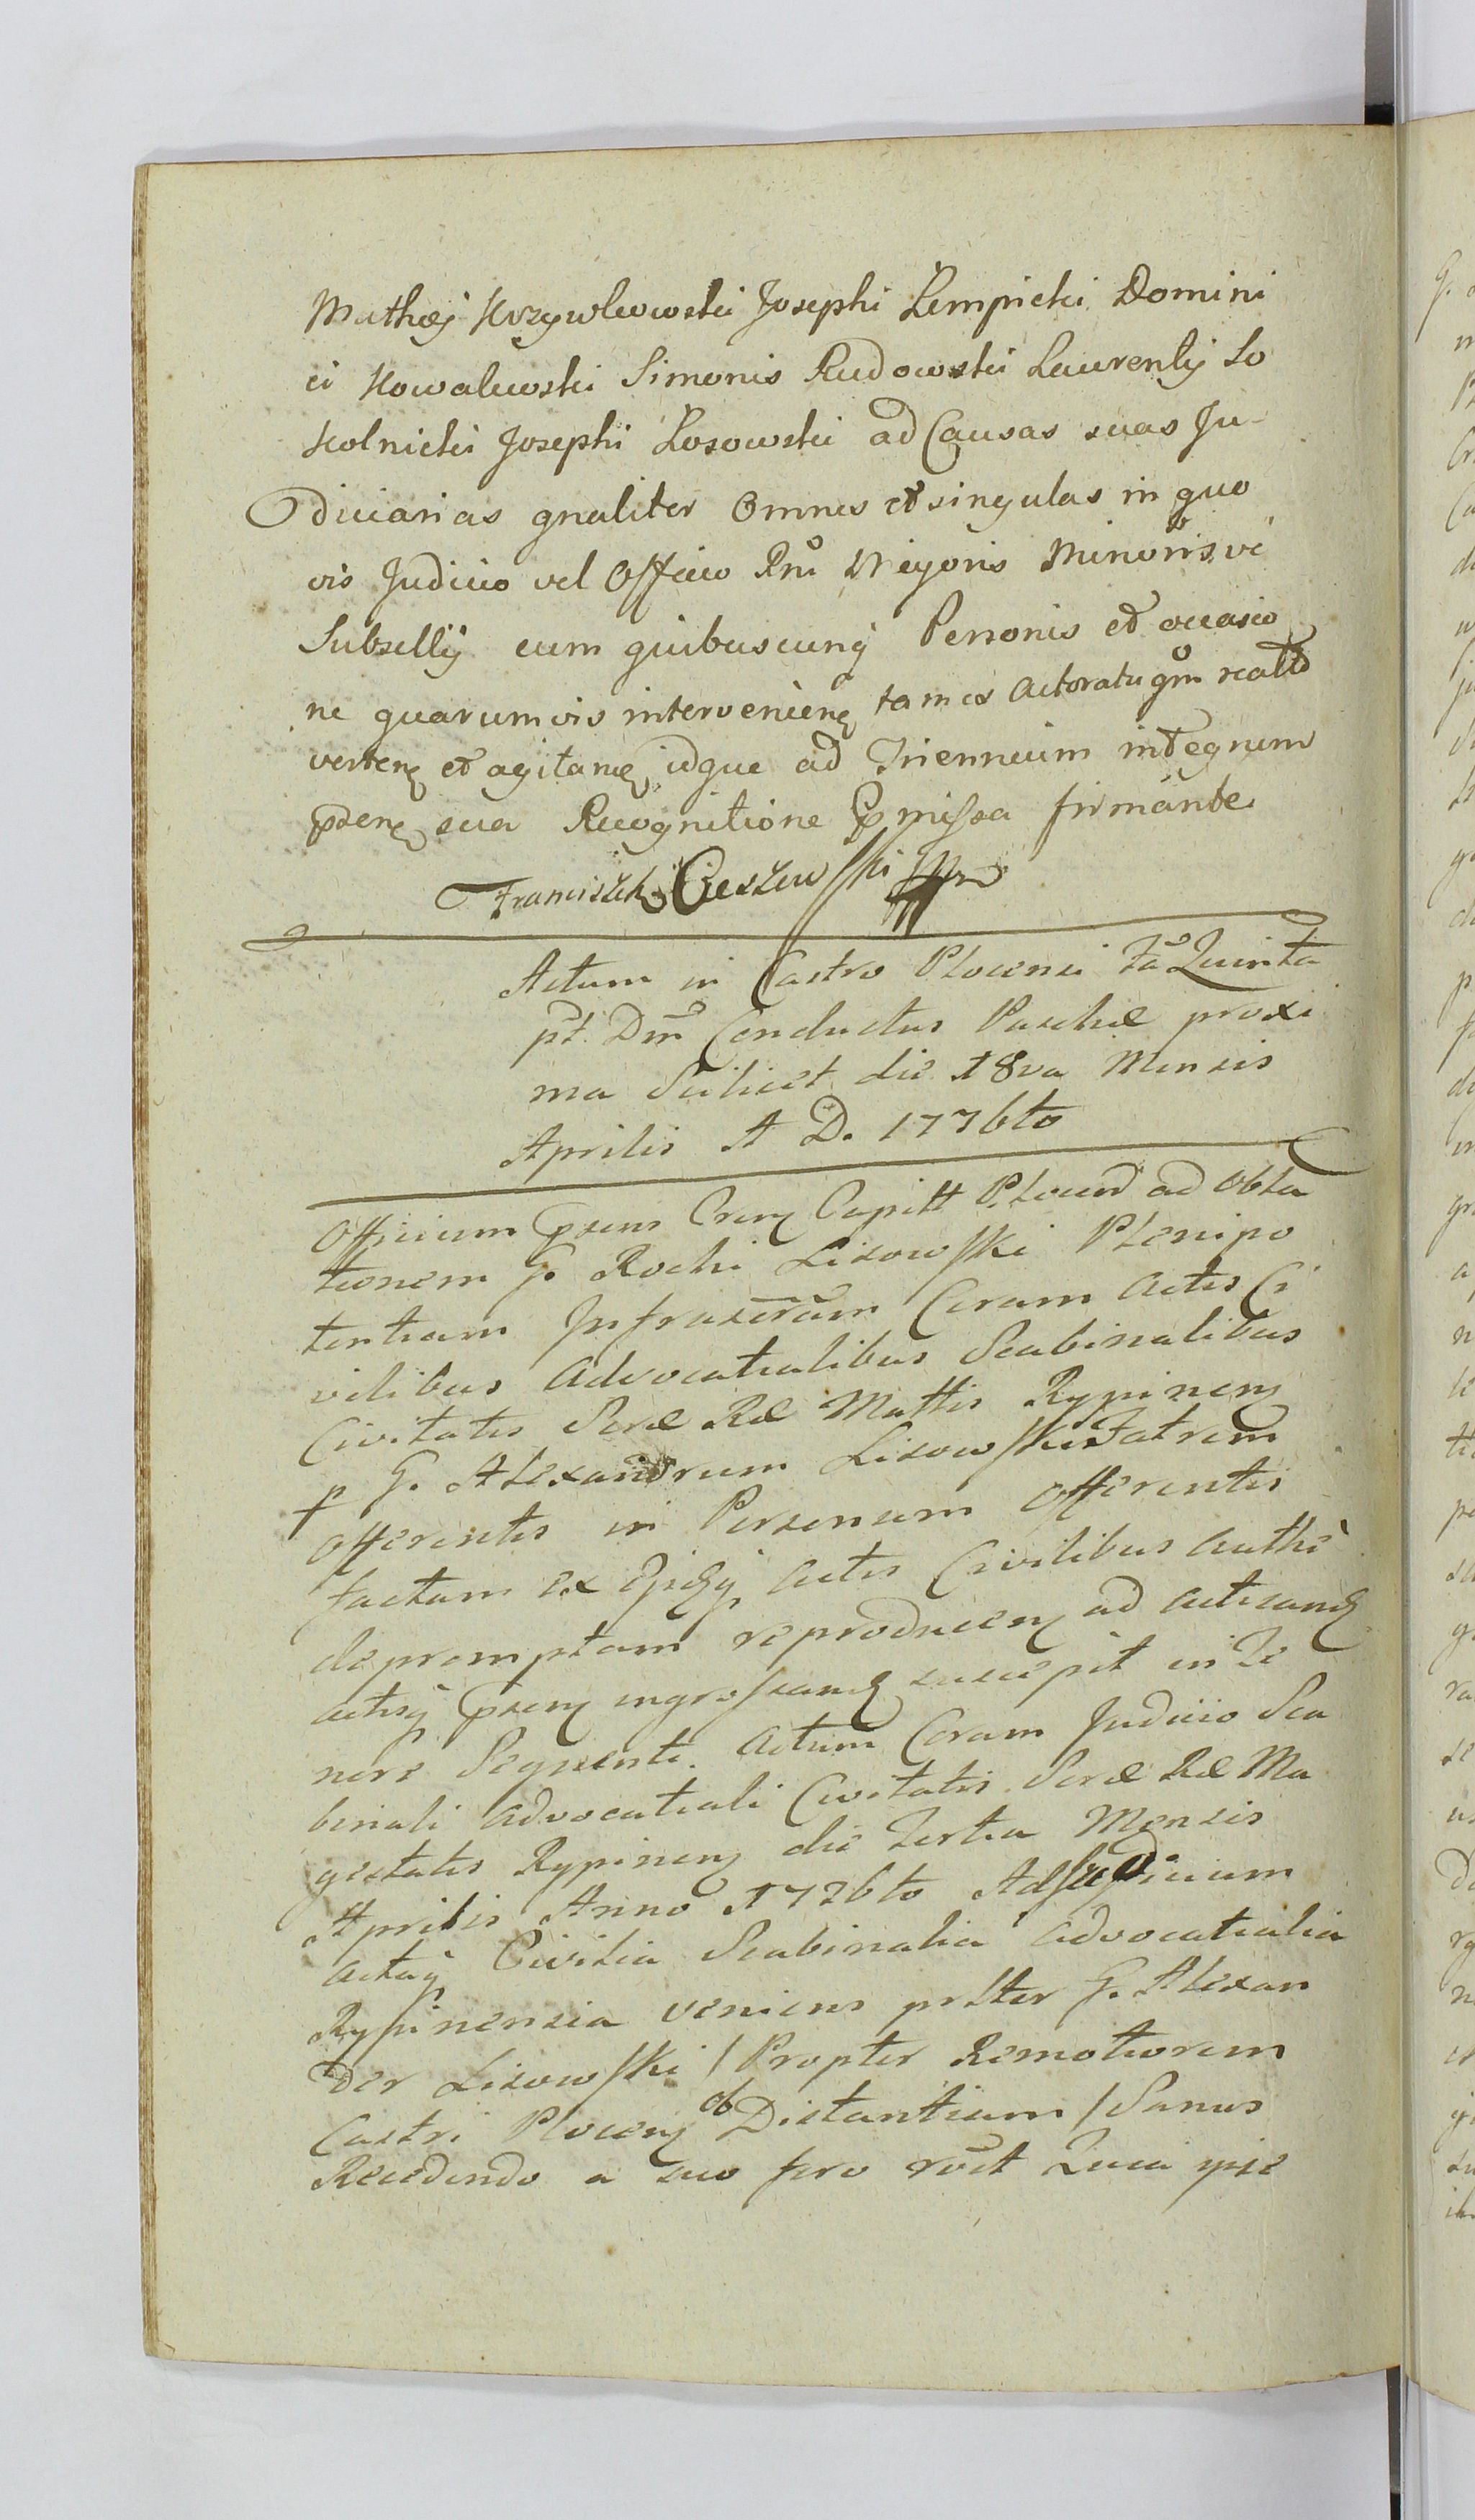 Mathæj Krzywkowski Josephi Lempicki Domini
ci Kowalewski Simonis Rudowski Laurentij So
kolnicki Josephi Losowski ad Causas suas Ju-
diciarias gnaliter Omnes et singulas in quo
vis Judicio vel Officio Rni Majoris Minoris ve
Subsellij cum quibuscunq Personis et occasio
ne quarumvis intervenien tam ex Actoratu qm reatu
verten et agitan idque ad Triennium integrum
psen sua Recognitione pmissa firmante
Franciszek Cieszewski mp
Actum in Castro Plocensi fa Quinta
pt Dm Conductus Paschæ proxi
ma Scilicet die 18va Mensis
Aprilis A D. 1776to
Officium psens Cren Capitt Plocen ad Obla
tionem G. Rochi Lisowski Plenipo
tentiam Infrascram Coram Actis Ci
vilibus Advocatialibus Scabinalibus
Civitatis Seræ Ræ Mattis Rypinen
p G. Alexandrum Lisowski Fatrem
Offerentis in Personam Offerentis
factam ex Ejsdq Actis Civilibus Authe
depromptam reproducen ad Acticand
actisq psen ingrossand suscepit in Te
nore Sequenti. Actum Coram Judicio Sca
binali Advocatiali Civitatis Seræ Ræ Ma
gestatis Rypinen die Tertia Mensis
Aprilis Anno 1776to Ad Judicium
Actaq Civilia Scabinalia Advocatialia
Rypinensia veniens psltter G. Alexan
der Lisowski / Propter Remotiorem
Castri Plocen ob Distantiam / Sanus
Recedendo a suo foro roct Quia ipse